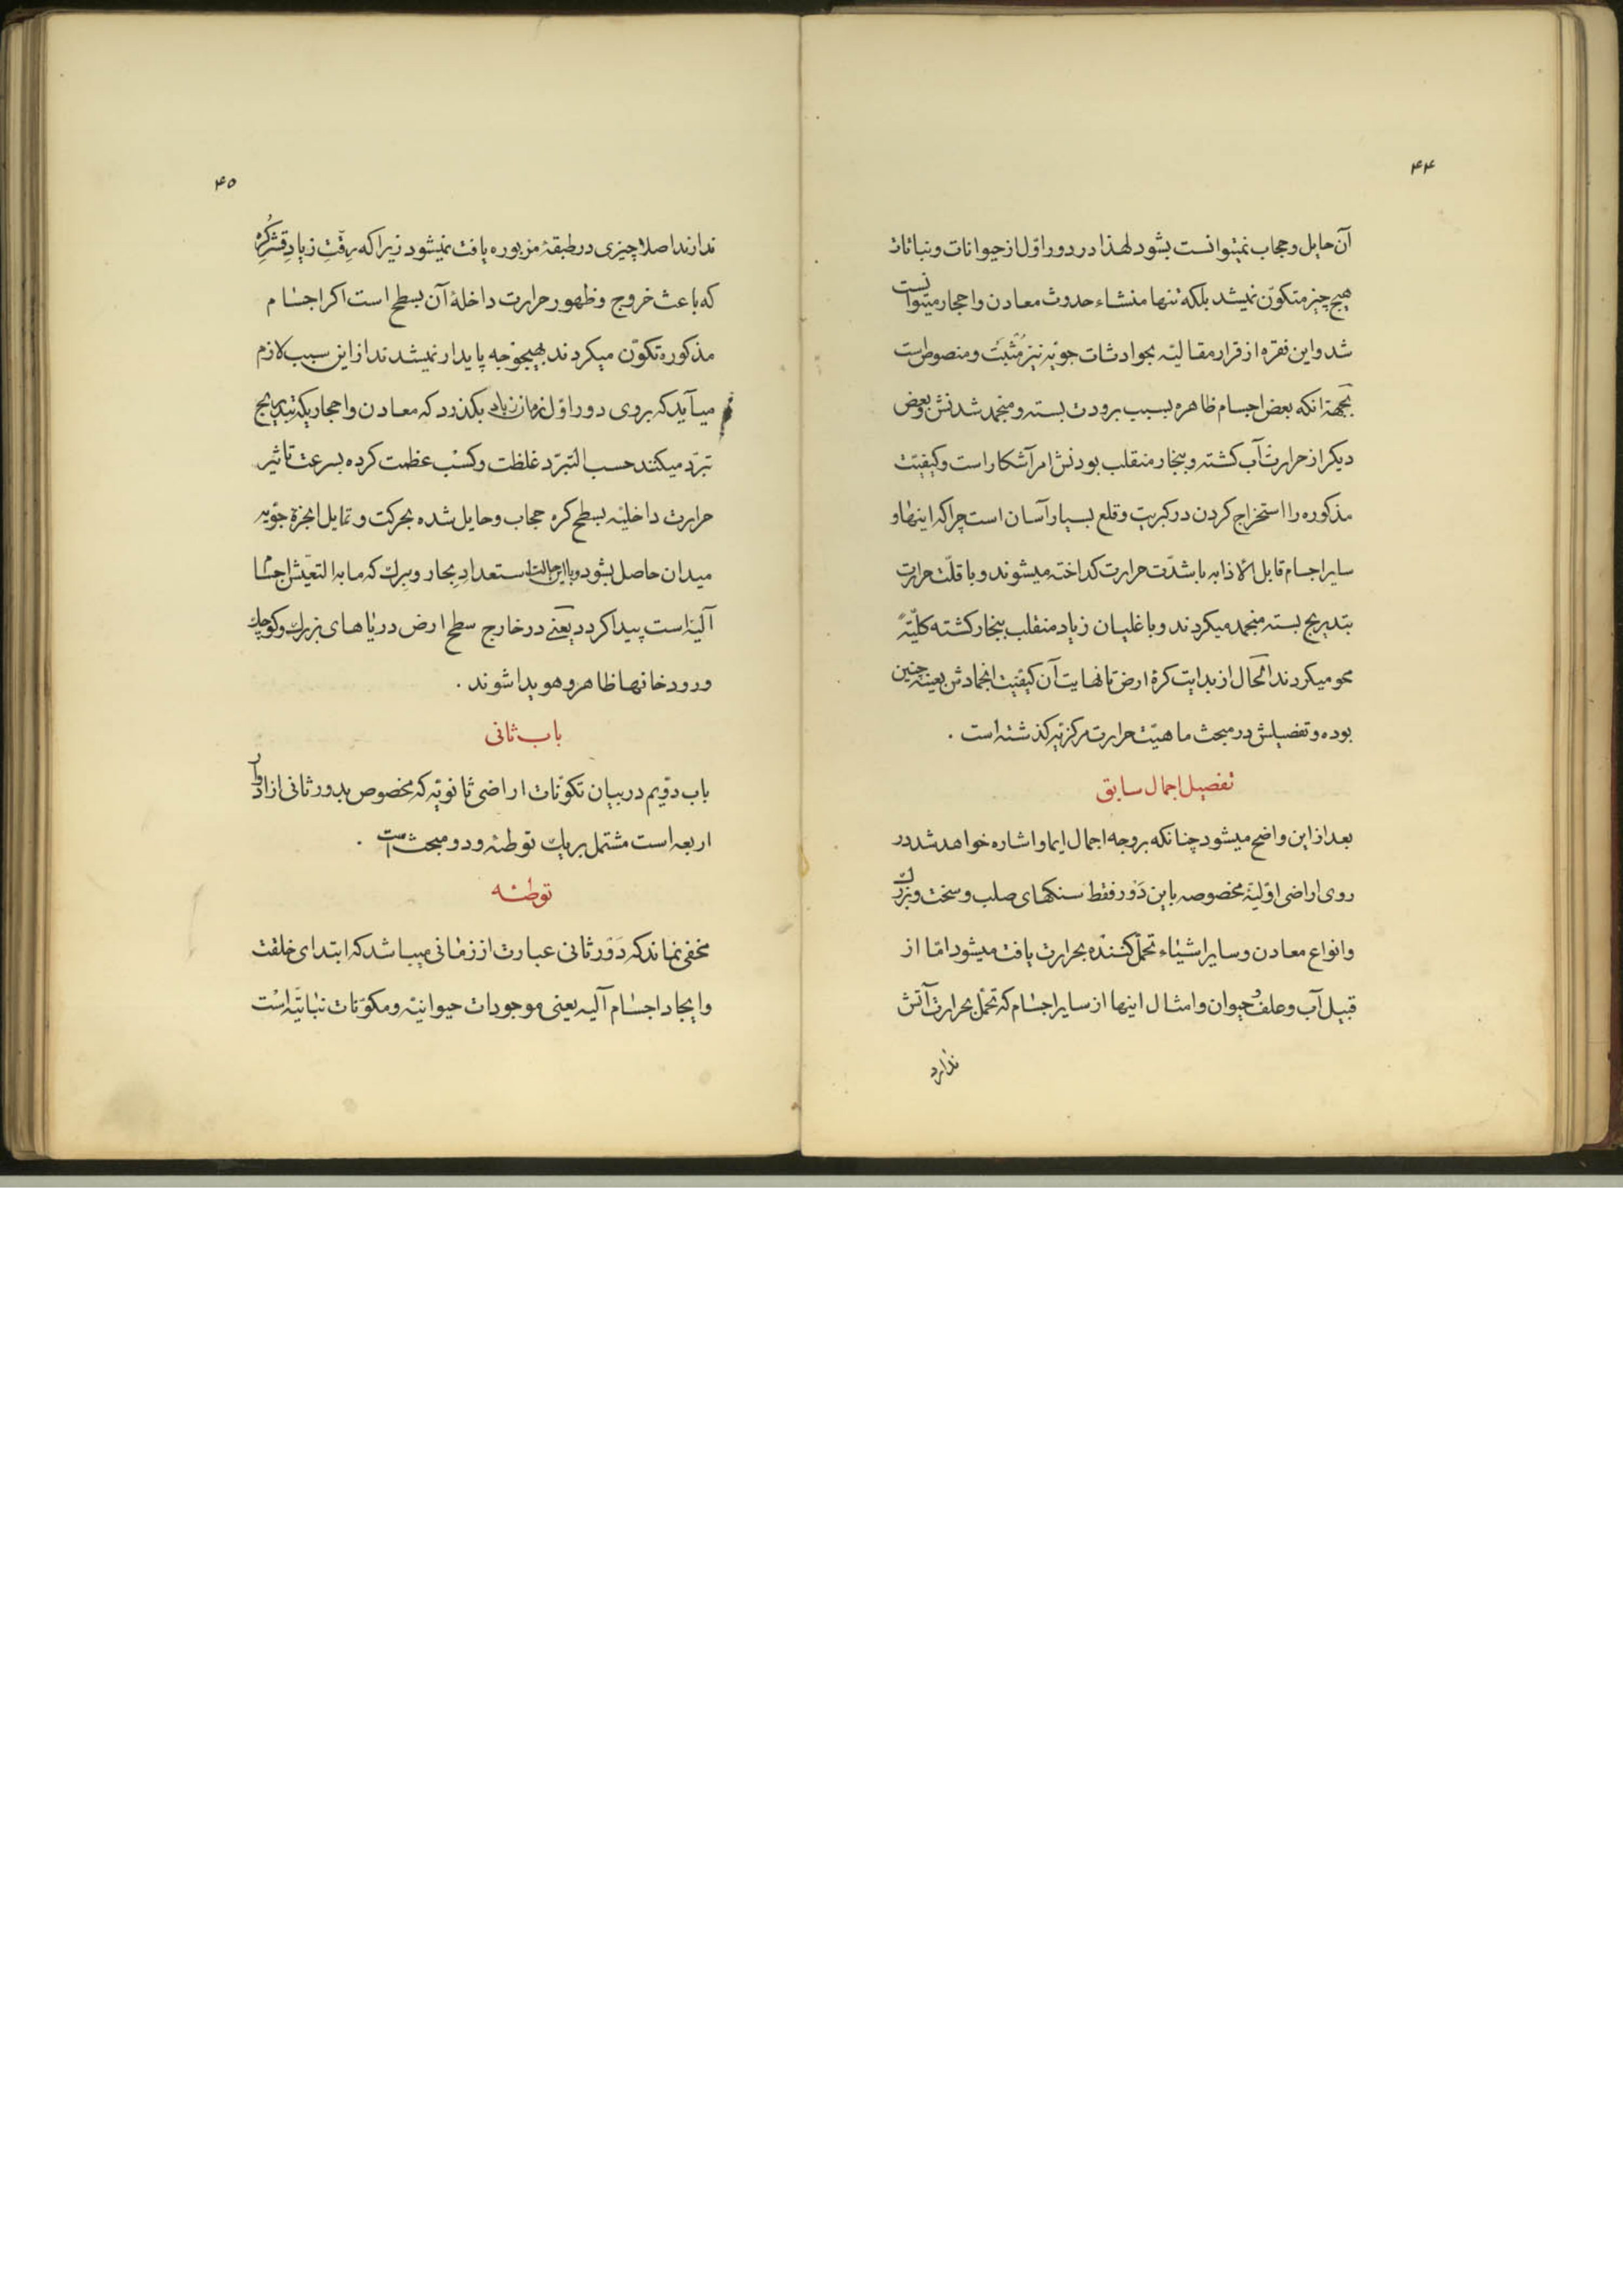 ۴۴
آن حایل و حجاب نمیتوانست بشود لهذا در دور اوّل از حیوانات و نباتات
هیچ چیز متکوّن نمیشد بلکه تنها منشاء حدوث معادن و احجار میتوانست
شد و این فقره از قرار مقالیّه بحوادثات جوّیه نیز مُثبَت و منصوص است
بجهة انکه بعض اجسام ظاهره بسبب برودت بسته و منجمد شدنش و بعض
دیکر از حرارت آب کشته و ببخار منقلب بودنش امر آشکار است و کیفیّت
مذکوره را استخراج کردن در کبریت و قلع بسیار آسان است چرا که اینها و
سایر اجسام قابل الاذابه با شدّت حرارت کداخته میشوند و با قلّت حرارت
بتدریج بسته منجمد میکردند و با غلیان زیاد منقلب ببخار کشته کلیّةً
محو میکردند الحال از بدایت کرهٔ ارض تا نهایت آن کیفیّت انجمادش بعینه چنین
بوده و تفضیلش در مبحث ماهیّت حرارت مرکزیّه کذشته است .
تفضیل اجمال سابق
بعد از این واضح میشود چنانکه بر وجه اجمال ایما و اشاره خواهد شد در
روی اراضی اوّلیّهٔ مخصوصه باین دَور فقط سنکهای صلب و سخت و بزرك
و انواع معادن و سایر اشیاء تحمّل کننده بحرارت یافت میشود امّا از
قبیل آب و علف و حیوان و امثال اینها از سایر اجسام که تحمّل بحرارت آتش
ندارد
۴۵
ندارند اصلا چیزی در طبقهٔ مزبوره یافت نمیشود زیرا که رِقّتِ زیادِ قشرِ کُره
که باعث خروج و ظهور حرارت داخلهٔ آن بسطح است اکر اجسام
مذکوره تکوّن میکردند بهیچوجه پایدار نمیشدند از این سبب لازم
میآید که بروی دور اوّل زمان زیاد بکذرد که معادن و احجاریکه بتدریج
تبرّد میکنند حسب التبرّد غلظت و کسب عظمت کرده بسرعت تاثیر
حرارت داخلیّه بسطح کره حجاب و حایل شده بحرکت و تمایل ابخرهٔ جوّیه
میدان حاصل بشود و با این حالت استعدادِ بحار و برك که مابه التعیّش اجسام
آلیّه است پیدا کردد یعنی در خارج سطح ارض دریاهای بزرك و کوچك
و رودخانها ظاهر و هویدا شوند .
باب ثانی
باب دوّیم در بیان تکوّنات اراضی ثانویّه که مخصوص بدور ثانی از ادوار
اربعه است مشتمل بر یك توطئه و دو مبحث است .
توطئه
مخفی نماند که دَور ثانی عبارت از زمانی میباشد که ابتدای خلقت
و ایجاد اجسام آلیه یعنی موجودات حیوانیّه و مکوّنات نباتیّه است